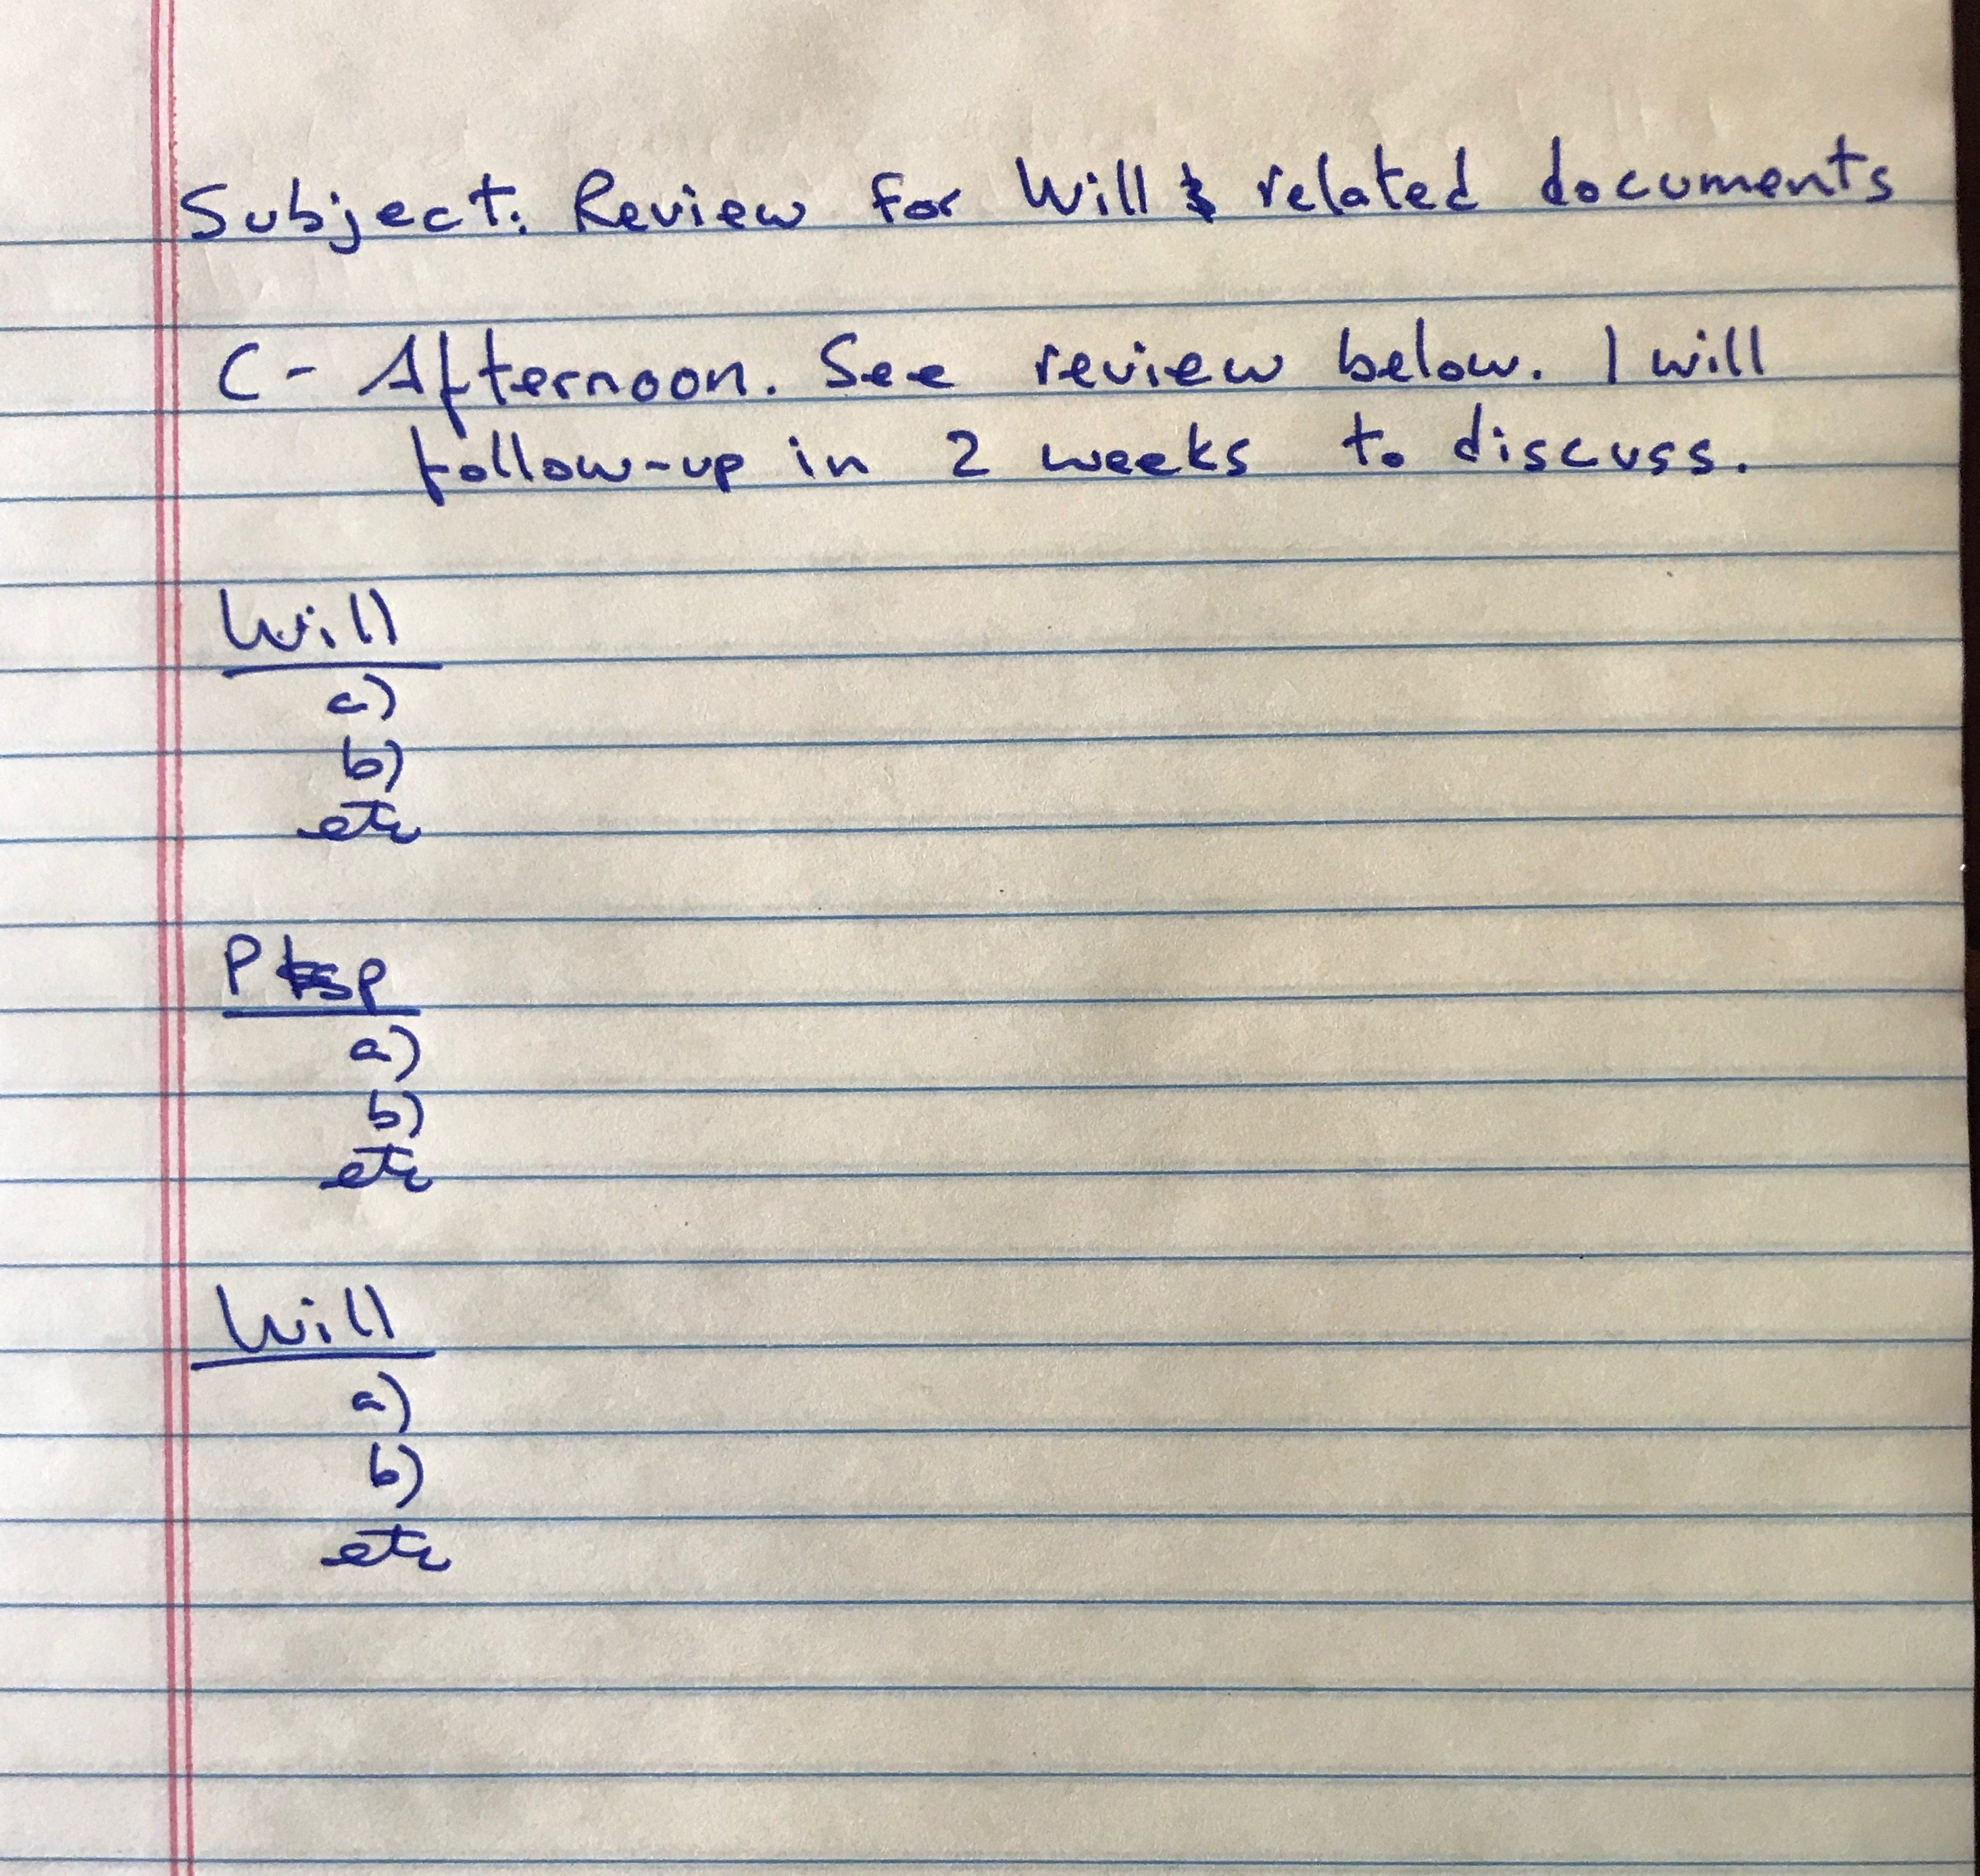 Subject: Review for Will & related documents
C- Afternoon. See review below. I will
follow-up in 2 weeks to discuss.
Will
a)
b)
etc
a)
b)
etc
Will
a)
b)
etc